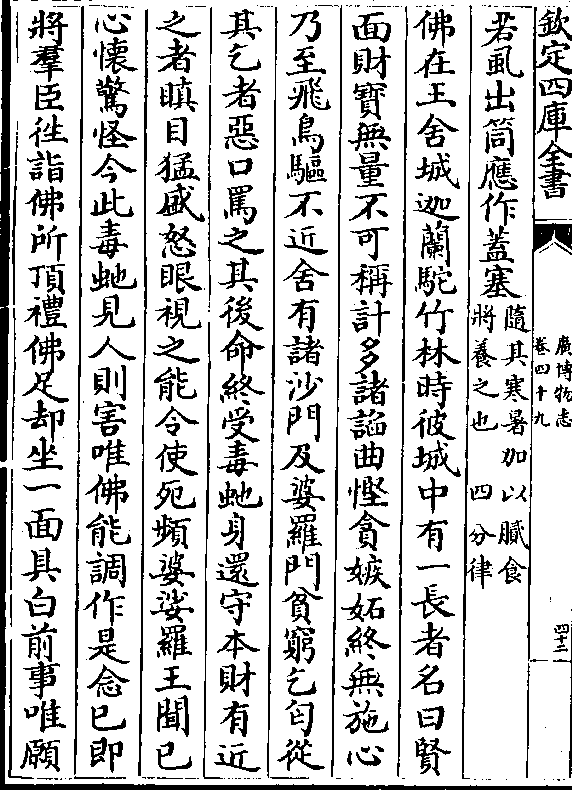 欽定四庫全書
廣博物志
卷四十九
四十二
若虱出筒應作蓋塞
隨其寒暑加以膩食
將養之也 四分律
佛在王舍城迦蘭駝竹林時彼城中有一長者名曰賢
面財寶無量不可稱計多諸謟曲慳貪嫉妬終無施心
乃至飛鳥驅不近舍有諸沙門及婆羅門貧窮乞匄從
其乞者惡口罵之其後命終受毒虵身還守本財有近
之者瞋目猛盛怒眼視之能令使死頻婆娑羅王聞已
心懷驚怪今此毒虵見人則害唯佛能調作是念已即
將羣臣徃詣佛所頂禮佛足却坐一面具白前事唯願